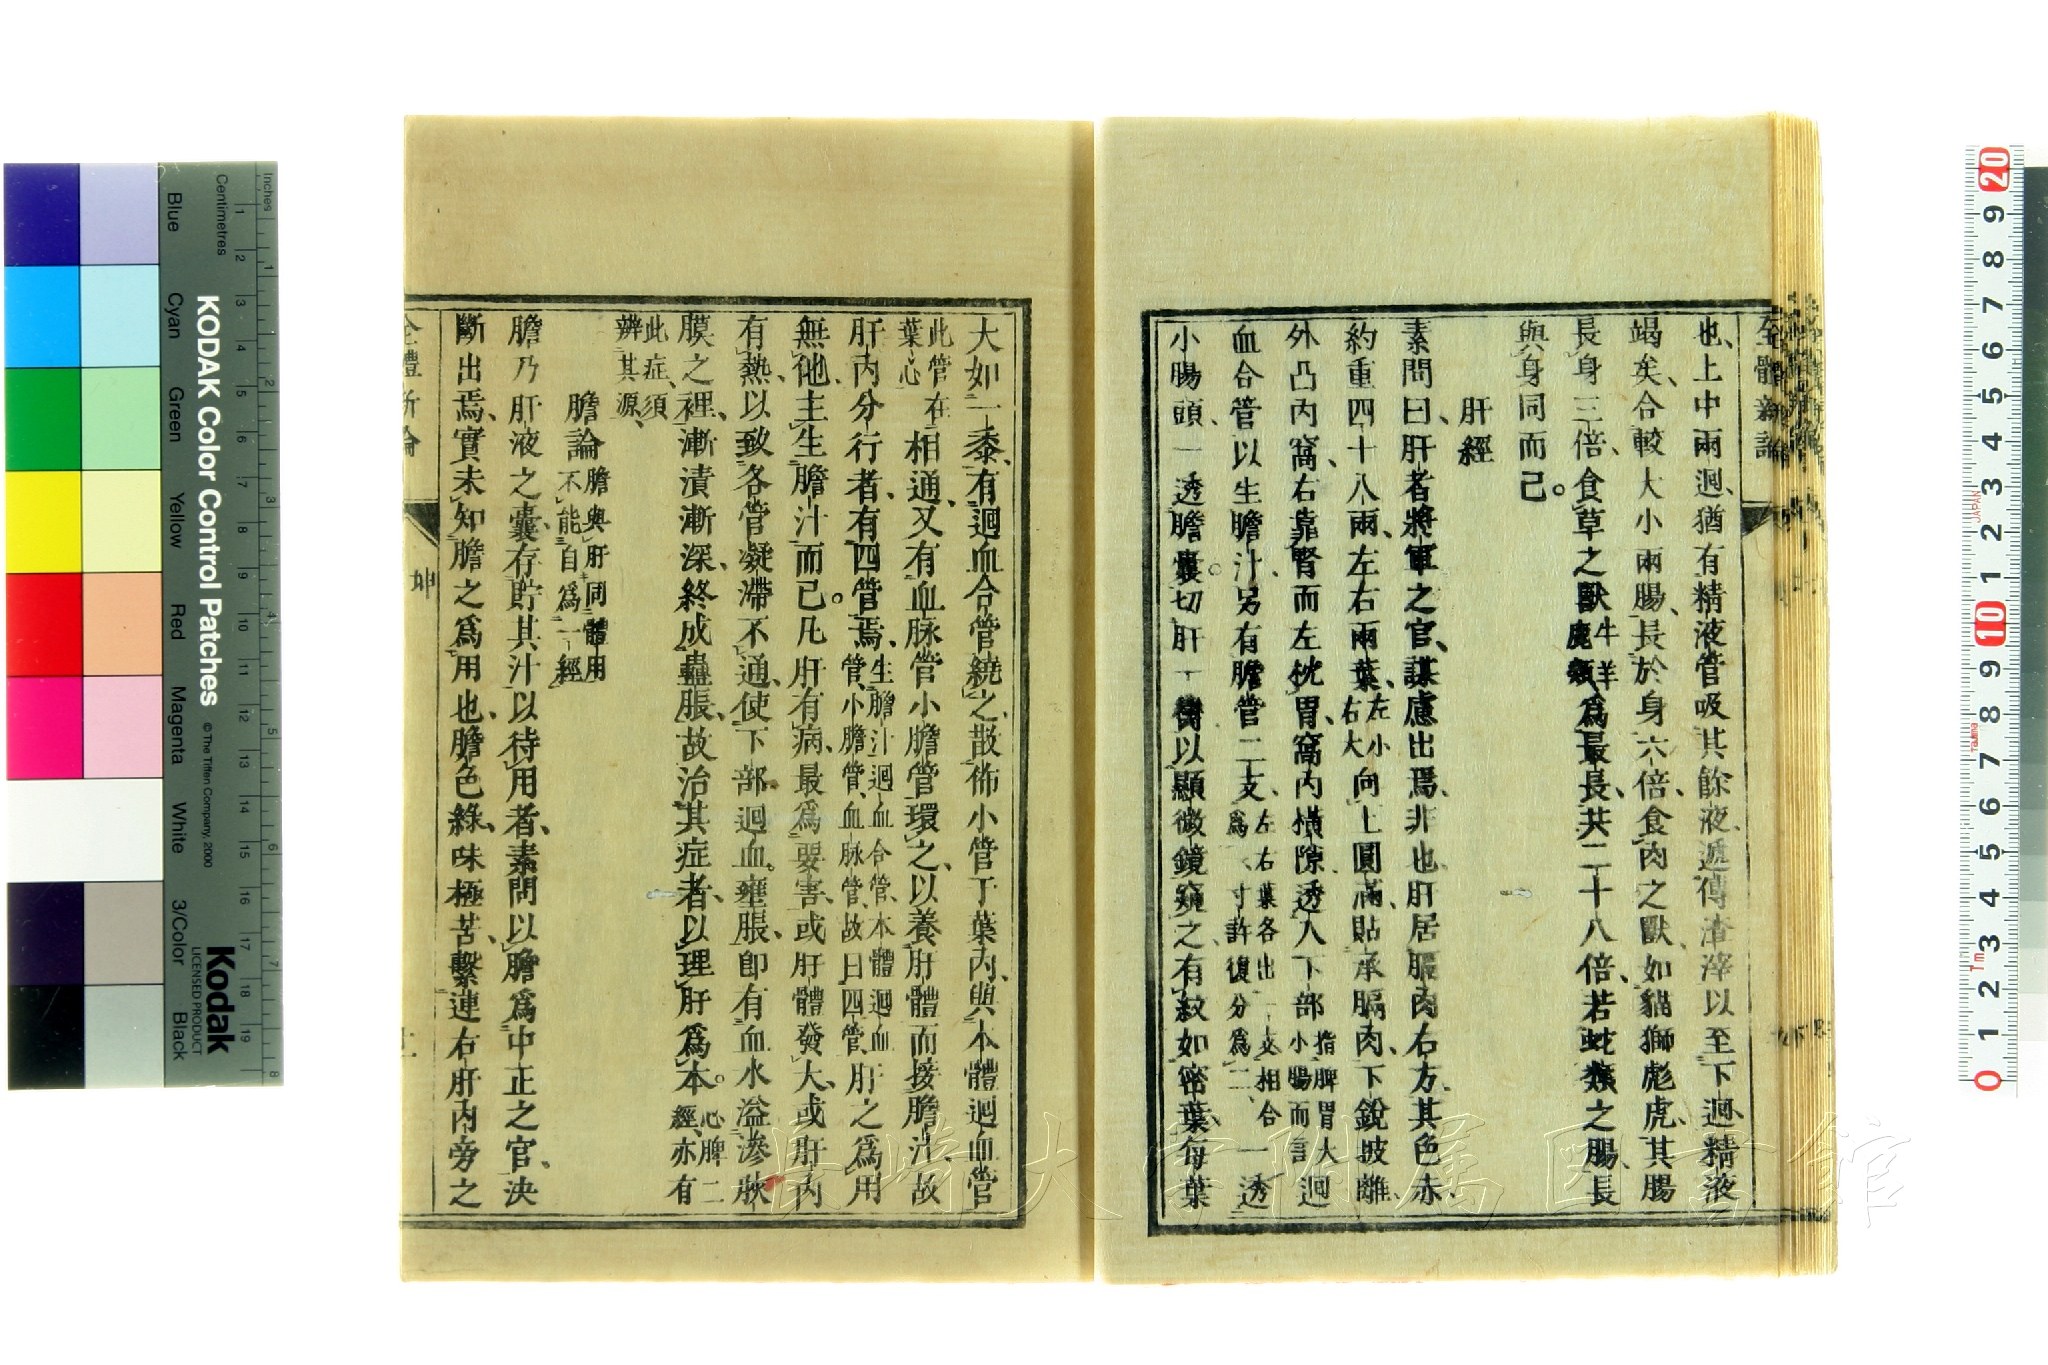 全體新論
也、上中兩迴、猶有精液管吸其餘液、遞傳渣滓以至下迴、精液
竭矣、合較大小兩腸、長於身六倍、食肉之獸、如貓獅彪虎、其腸
長身三倍、食草之獸牛羊鹿類、爲最長、共二十八倍、若蛇類之腸、長
與身同而已。
肝經
素問曰、肝者將軍之官、謀慮出焉、非也、肝居膈肉右方、其色赤、
約重四十八兩、左右兩葉、左小右大向上圓滿、貼承膈肉、下銳披離、
外凸內窩、右靠腎而左枕胃、窩內橫隙、透入下部指脾胃大小腸而言迴
血合管以生膽汁、另有膽管二支、左右葉各出一支相合爲一寸許復分爲二、一透
小腸頭、一透膽囊。切肝一臠、以顯微鏡窺之、有紋如密葉、每葉
大如一黍、有迴血合管繞之、散佈小管于葉內、與本體迴血管
此管在葉心相通、又有血脉管小膽管環之、以養肝體而接膽汁、故
肝內分行者、有四管焉、生膽汁迴血合管、本體迴血管、小膽管、血脉管、故曰四管、肝之爲用
無他、主生膽汁而已。凡肝有病、最爲要害、或肝體發大、或肝內
有熱、以致各管凝滯不通、使下部迴血。壅脹、卽有血水溢滲肷
膜之裡、漸漬漸深、終成蠱脹、故治其症者、以理肝爲本。心脾二經、亦有
此症、須辨其源、
膽論膽與肝同體用不能自爲一經
膽乃肝液之囊、存貯其汁以待用者、素問以膽爲中正之官、決
斷出焉、實未知膽之爲用也、膽色綠、味極苦、繫連右肝內旁之
全體新論
坤